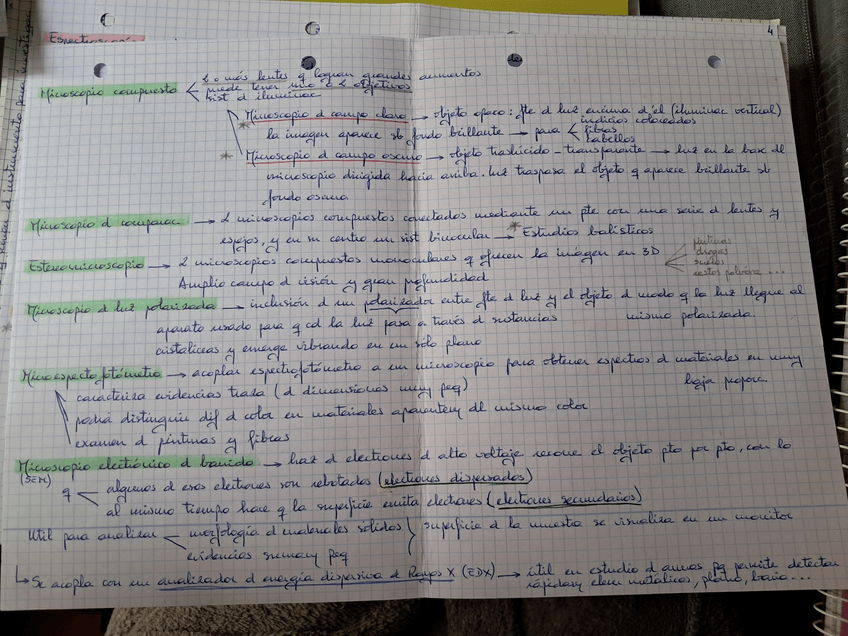 4
Espectroscopía
Microscopio compuesto
2 o más lentes q logran grandes aumentos
puede tener uno o 2 objetivos
sist d iluminac
Microscopio d campo claro → objeto opaco: fte d luz encima d él (iluminac vertical)
la imagen aparece sb fondo brillante → para
indicios coloreados
fibras
cabellos
Microscopio d campo oscuro → objeto traslúcido - transparente → luz en la base dl
microscopio dirigida hacia arriba. luz traspasa el objeto q aparece brillante sb
fondo oscuro
Microscopio d comparac. → 2 microscopios compuestos conectados mediante un pte con una serie d lentes y
espejos, y en su centro un sist binocular → Estudios balísticos
Estereomicroscopio → 2 microscopios compuestos monoculares q ofrecen la imágen en 3D
pinturas
drogas
suelos
restos pólvora ...
Amplio campo d visión y gran profundidad
Microscopio d luz polarizada → inclusión d un polarizador entre fte d luz y el objeto d modo q la luz llegue al
mismo polarizada.
aparato usado para q cd la luz pasa a través d sustancias
cristalíceas y emerge vibrando en un sólo plano
Microespectofotómetro → acoplar espectofotómetro a un microscopio para obtener espectros d materiales en muy
baja proporc.
caracteriza evidencias traza (d dimensiones muy peq)
podrá distinguir dif d color en materiales aparentem dl mismo color
examen d pinturas y fibras
Microscopio electrónico d barrido → haz d electrones d alto voltaje recorre el objeto pto por pto, con lo
(SEM)
q
algunos d esos electrones son rebotados (electrones dispersados)
al mismo tiempo hace q la superficie emita electrones (electrones secundarios)
Util para analizar
morfología d materiales sólidos
evidencias sumam peq
superficie d la muestra se visualiza en un monitor
Se acopla con un analizador d energía dispersiva d Rayos X (EDX) → útil en estudio d armas pq permite detectar
rápidam elem metálicos, plomo, bario...